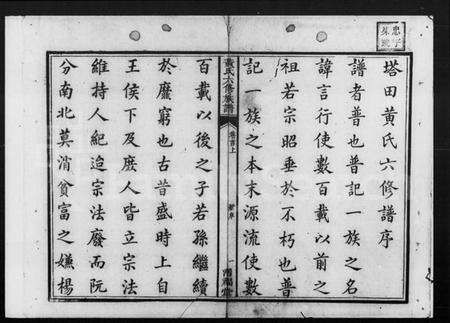 塔田黃氏六修譜序
譜者普也普記一族之名
諱言行使數百載以前之
祖若宗昭垂於不朽也普
記一族之本末源流使數
黃氏六修族譜
卷首上
百載以後之子若孫繼續
於靡窮也古昔盛時上自
王侯下及庶人皆立宗法
維持人紀迨宗法廢而阮
分南北莫消貧富之嫌楊